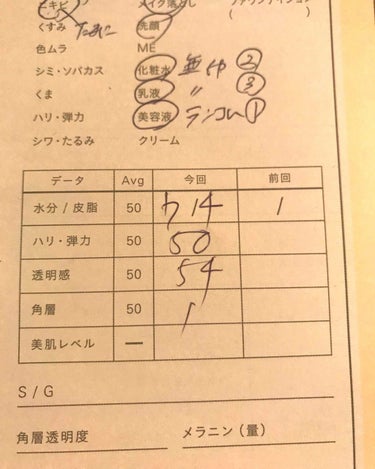 ニキビ メイク落とし ファウンデイション
くすみ たまに 洗顔 ( )
色ムラ ME
シミ・ソバカス 化粧水 無印 ②
くま 乳液 〃 ③
ハリ・弾力 美容液 ランコム ①
シワ・たるみ クリーム
データ Avg 今回 前回
水分 / 皮脂 50 14 1
ハリ・弾力 50 50
透明感 50 54
角層 50 1
美肌レベル ー
S / G
角層透明度 メラニン(量)